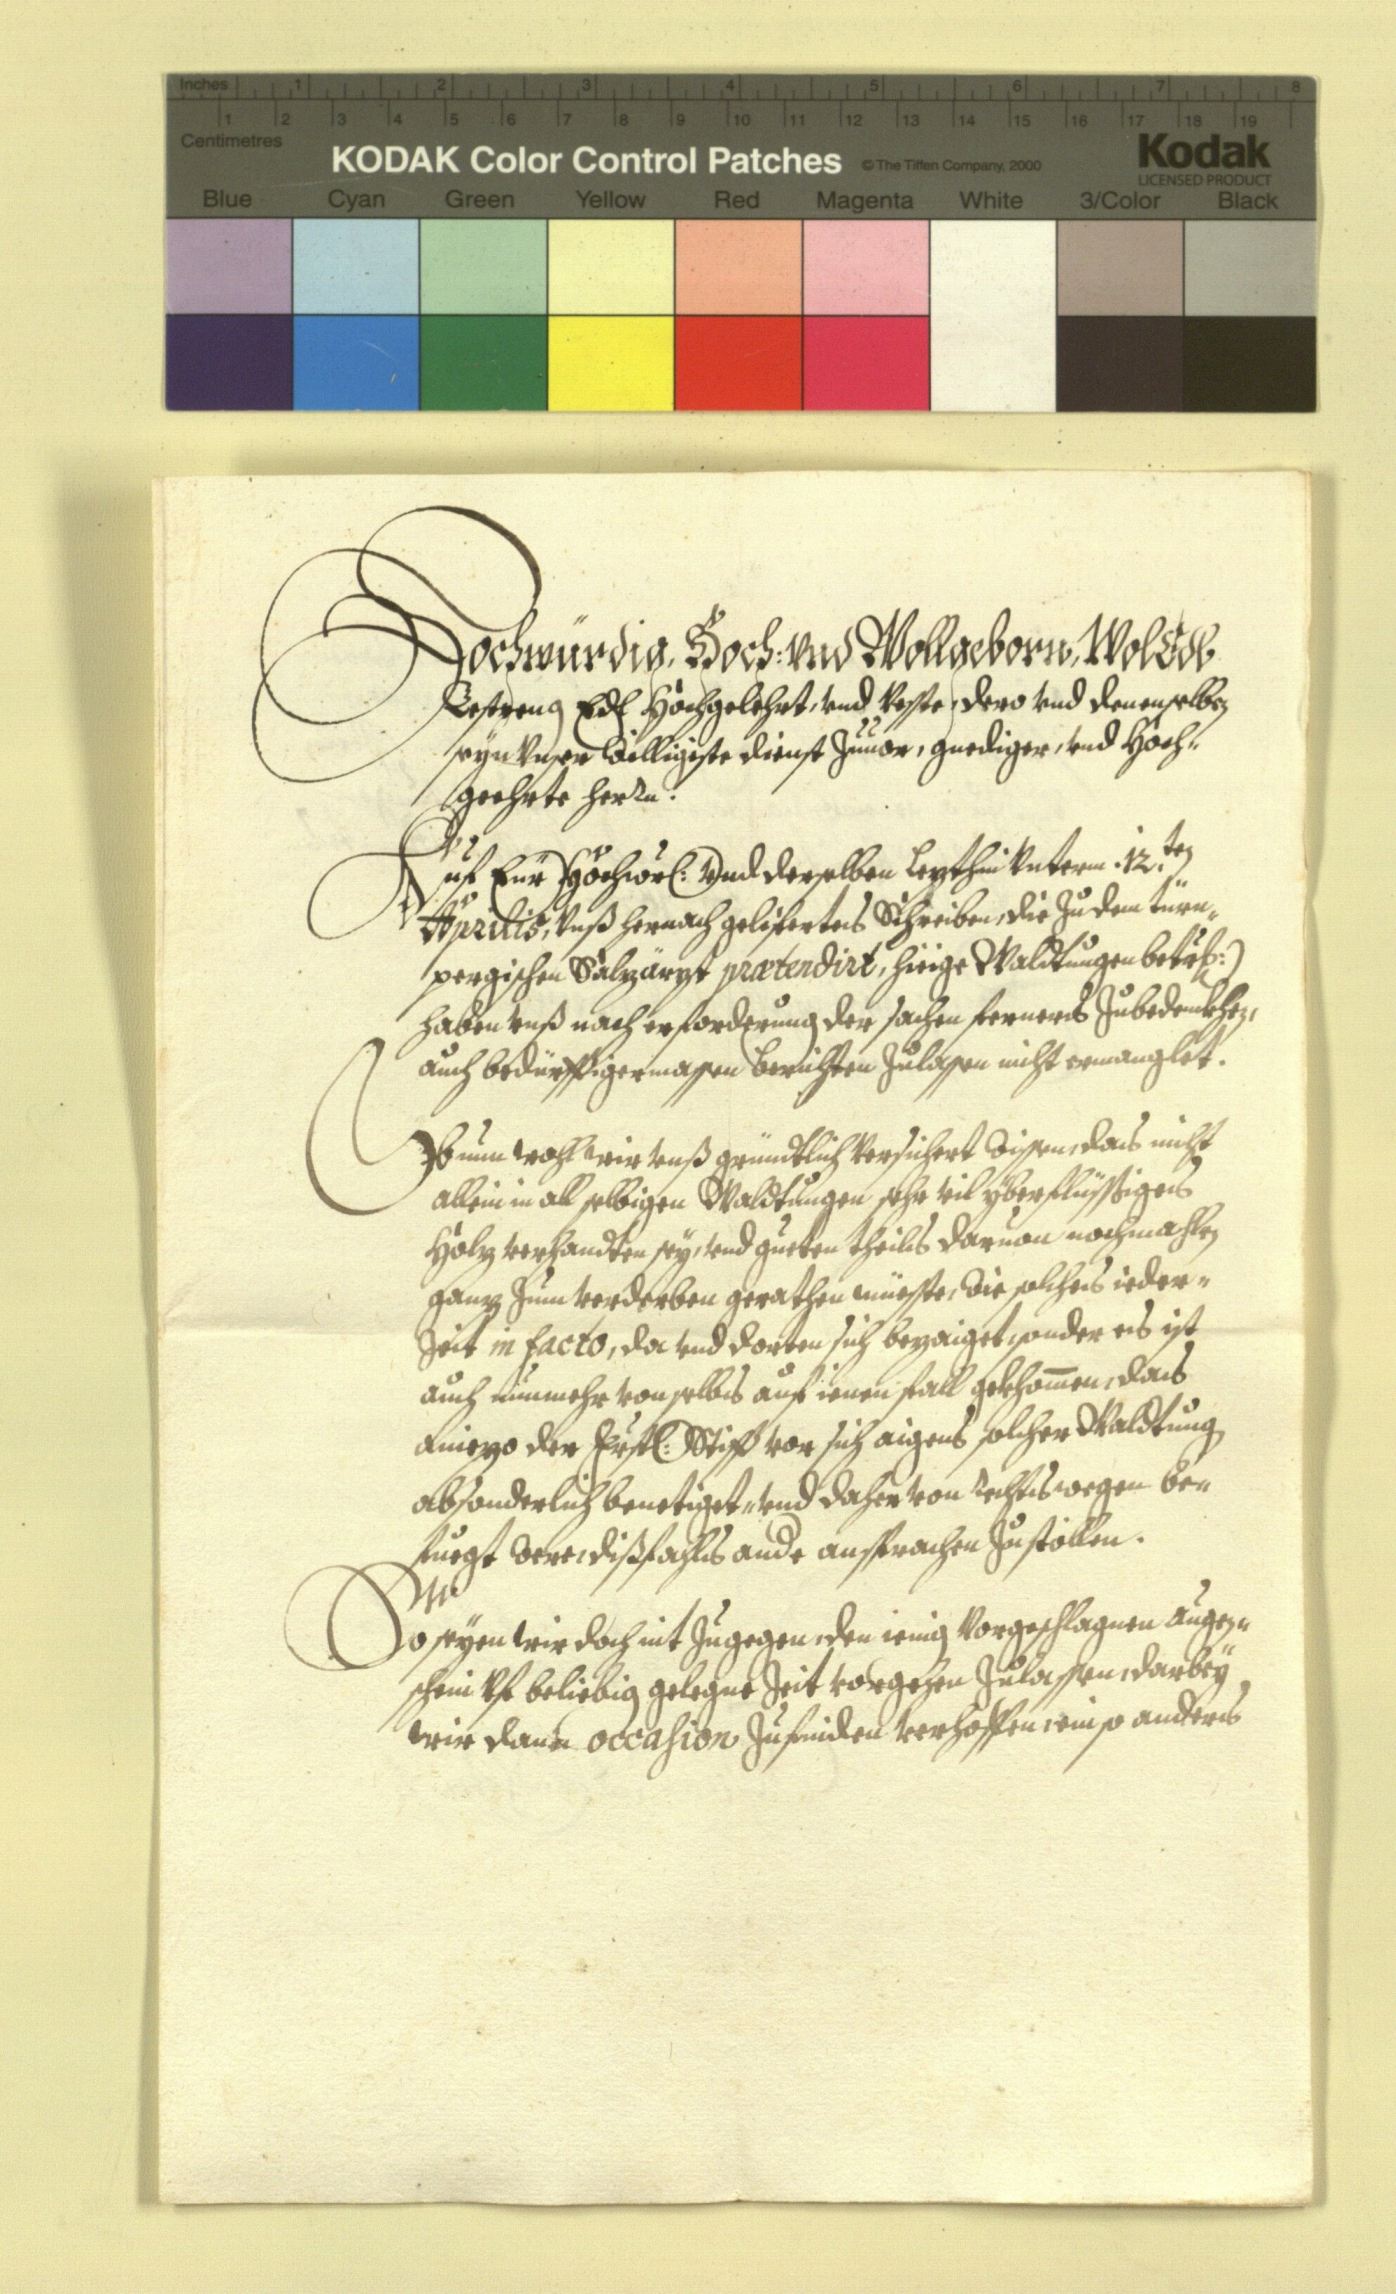 Inches 1 2 3 4 5 6 7 8
1 2 3 4 5 6 7 8 9 10 11 12 13 14 15 16 17 18 19
Centimetres
KODAK Color Control Patches © The Tiffen Company, 2000 Kodak
LICENSED PRODUCT
Blue Cyan Green Yellow Red Magenta White 3/Color Black
Hochwürdig, Hoch: vnd Wollgeborn, Wol Edl
Gestreng Edl Hochgelehrt, vnd veste, dero vnd denenselben
seyn vnser willigiste dienst Zuuor, gnediger, vnd Hoch-
geehrte herrn.
Auf Eur Hochwr: vnd derselben letzthin vnterm .12.ten
Aprilis, vnß hernach gelifertes Schreiben, die Zu dem türn-
pergischen Salzärzt prætendirt, hieige Waldtungen betrf:)
haben vnß nach erforderung der sachen ferners Zubedenkhen,
auch bedürfftigermassen berichten Zulassen nicht ermanglet.
Ob nun wohl wir vnß gründtlich versichert wissen, das nicht
allein in all selbigen Waldtungen sehr vil yberflüssiges
Holz verhandten sey, vnd gueten theils daruon nochmahlen
ganz Zum verderben gerathen müeste, wie solches ieder-
Zeit in facto, da vnd dorten sich bezaiget, sonder es ist
auch nunmehr von selbs auf ienen fall gekhommen, das
aniezo der Frstl: Stifft vor sich aigens solcher Waldtung
absonderlich benetiget, vnd daher von rechts wegen be-
fuegt were, dißfahls ande ansprachen Zustöllen.
So seyen wir doch nit Zugegen, den ienig vorgeschlagnen augen-
schein vf beliebig gelegne Zeit vorgehen Zulassen, darbey
wir dann occasion Zufinden verhoffen, ein so anders